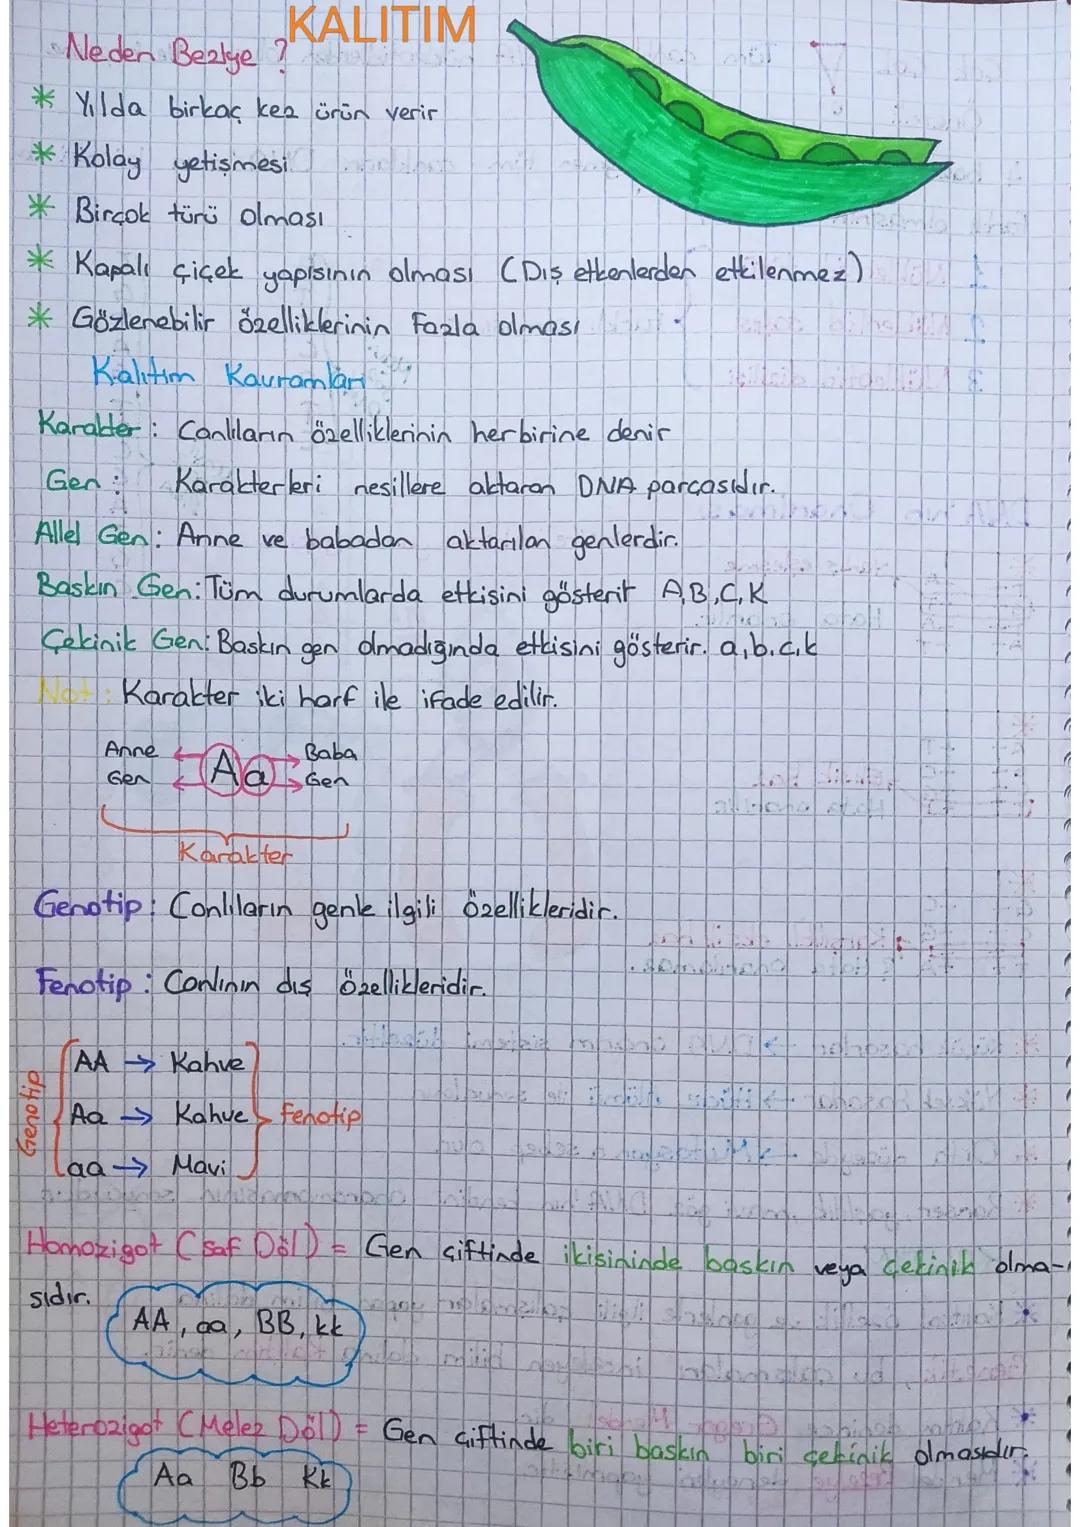 KALITIM
Neden Bezlye ?
* Yılda birkaç kez ürün verir
* Kolay yetişmesi
* Birçok türü olması
* Kapalı çiçek yapısının olması (Dış etkenlerden etkilenmez)
* Gözlenebilir özelliklerinin fazla olması
Kalıtım Kavramları
Karakter : Canlıların özelliklerinin herbirine denir
Gen : Karakterleri nesillere aktaran DNA parçasıdır.
Allel Gen : Anne ve babadan aktarılan genlerdir.
Baskın Gen : Tüm durumlarda etkisini gösterir A,B,C,K
Çekinik Gen : Baskın gen olmadığında etkisini gösterir. a,b,c,k
Not : Karakter iki harf ile ifade edilir.
Anne Aa Baba
Gen Gen
Karakter
Genotip : Canlıların genle ilgili özellikleridir.
Fenotip : Canlının dış özellikleridir.
Genotip
AA → Kahve
Aa → Kahve fenotip
aa → Mavi
Homozigot (saf Döl) = Gen çiftinde ikisininde baskın veya çekinik olma-
sıdır.
AA, aa, BB, kk
Heterozigot (Melez Döl) = Gen çiftinde biri baskın biri çekinik olmasıdır.
Aa Bb Kk